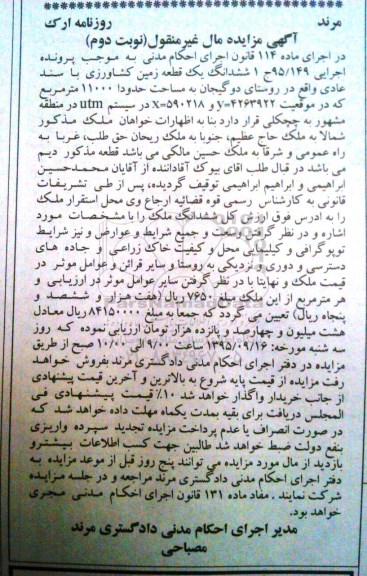 مرند روزنامه ارک
آگهی مزایده مال غیرمنقول(نوبت دوم)
در اجرای ماده ۱۱۴ قانون اجرای احکام مدنی به موجب پرونده
اجرایی ۹۵/۱۴۹ج ۱ ششدانگ یک قطعه زمین کشاورزی با سند
عادی واقع در روستای دوگیجان به مساحت حدودا ۱۱۰۰۰ مترمربع
که در موقعیت y=۴۲۶۳۹۲۲ و x=۵۹۰۲۱۸ در سیستم utm در منطقه
مشهور به چچکلی قرار دارد بنا به اظهارات خواهان ملک مذکور
شمالا به ملک حاج عظیم، جنوبا به ملک ریحان حق طلب، غربا به
راه عمومی و شرقا به ملک حسین مالکی می باشد قطعه مذکور دیم
می باشد در قبال طلب اقای بیوک آقاداننده از آقایان محمدحسین
ابراهیمی و ابراهیم ابراهیمی توقیف گردیده، پس از طی تشریفات
قانونی به کارشناس رسمی قوه قضائیه ارجاع وی محل استقرار ملک
را به ادرس فوق ارزش کل ششدانگ ملک را با مشخصات مورد
اشاره و در نظر گرفتن وسعت و جمیع شرایط و عوارض و نیز شرایط
توپوگرافی و کلیمایی محل و کیفیت خاک زراعی و جاده های
دسترسی و دوری و نزدیکی به روستا و سایر قرائن و عوامل موثر در
قیمت ملک و نهایتا با در نظر گرفتن سایر عوامل موثر در ارزیابی و
هر مترمربع از این ملک مبلغ ۷۶۵۰ ریال (هفت هزار و ششصد و
پنجاه ریال) تعیین می گردد که جمعا به مبلغ ۸۴۱۵۰۰۰۰ ریال معادل
هشت میلیون و چهارصد و پانزده هزار تومان ارزیابی نموده که روز
سه شنبه مورخه: ۱۳۹۵/۰۹/۱۶ ساعت ۹/۰۰ الی ۱۰/۰۰ صبح از طریق
مزایده در دفتر اجرای احکام مدنی دادگستری مرند بفروش خواهد
رفت مزایده از قیمت پایه شروع به بالاترین و آخرین قیمت پیشنهادی
از جانب خریدار واگذار خواهد شد ۱۰٪ قیمت پیشنهادی فی
المجلس دریافت برای بقیه بمدت یکماه مهلت داده خواهد شد که
در صورت انصراف یا عدم پرداخت مزایده تجدید سپرده واریزی
بنفع دولت ضبط خواهد شد طالبین جهت کسب اطلاعات بیشترو
بازدید از مال مورد مزایده می توانند پنج روز قبل از موعد مزایده به
دفتر اجرای احکام مدنی دادگستری مرند مراجعه و در جلسه مزایده
شرکت نمایند . مفاد ماده ۱۳۱ قانون اجرای احکام مدنی مجری
خواهد بود.
مدیر اجرای احکام مدنی دادگستری مرند
مصباحی